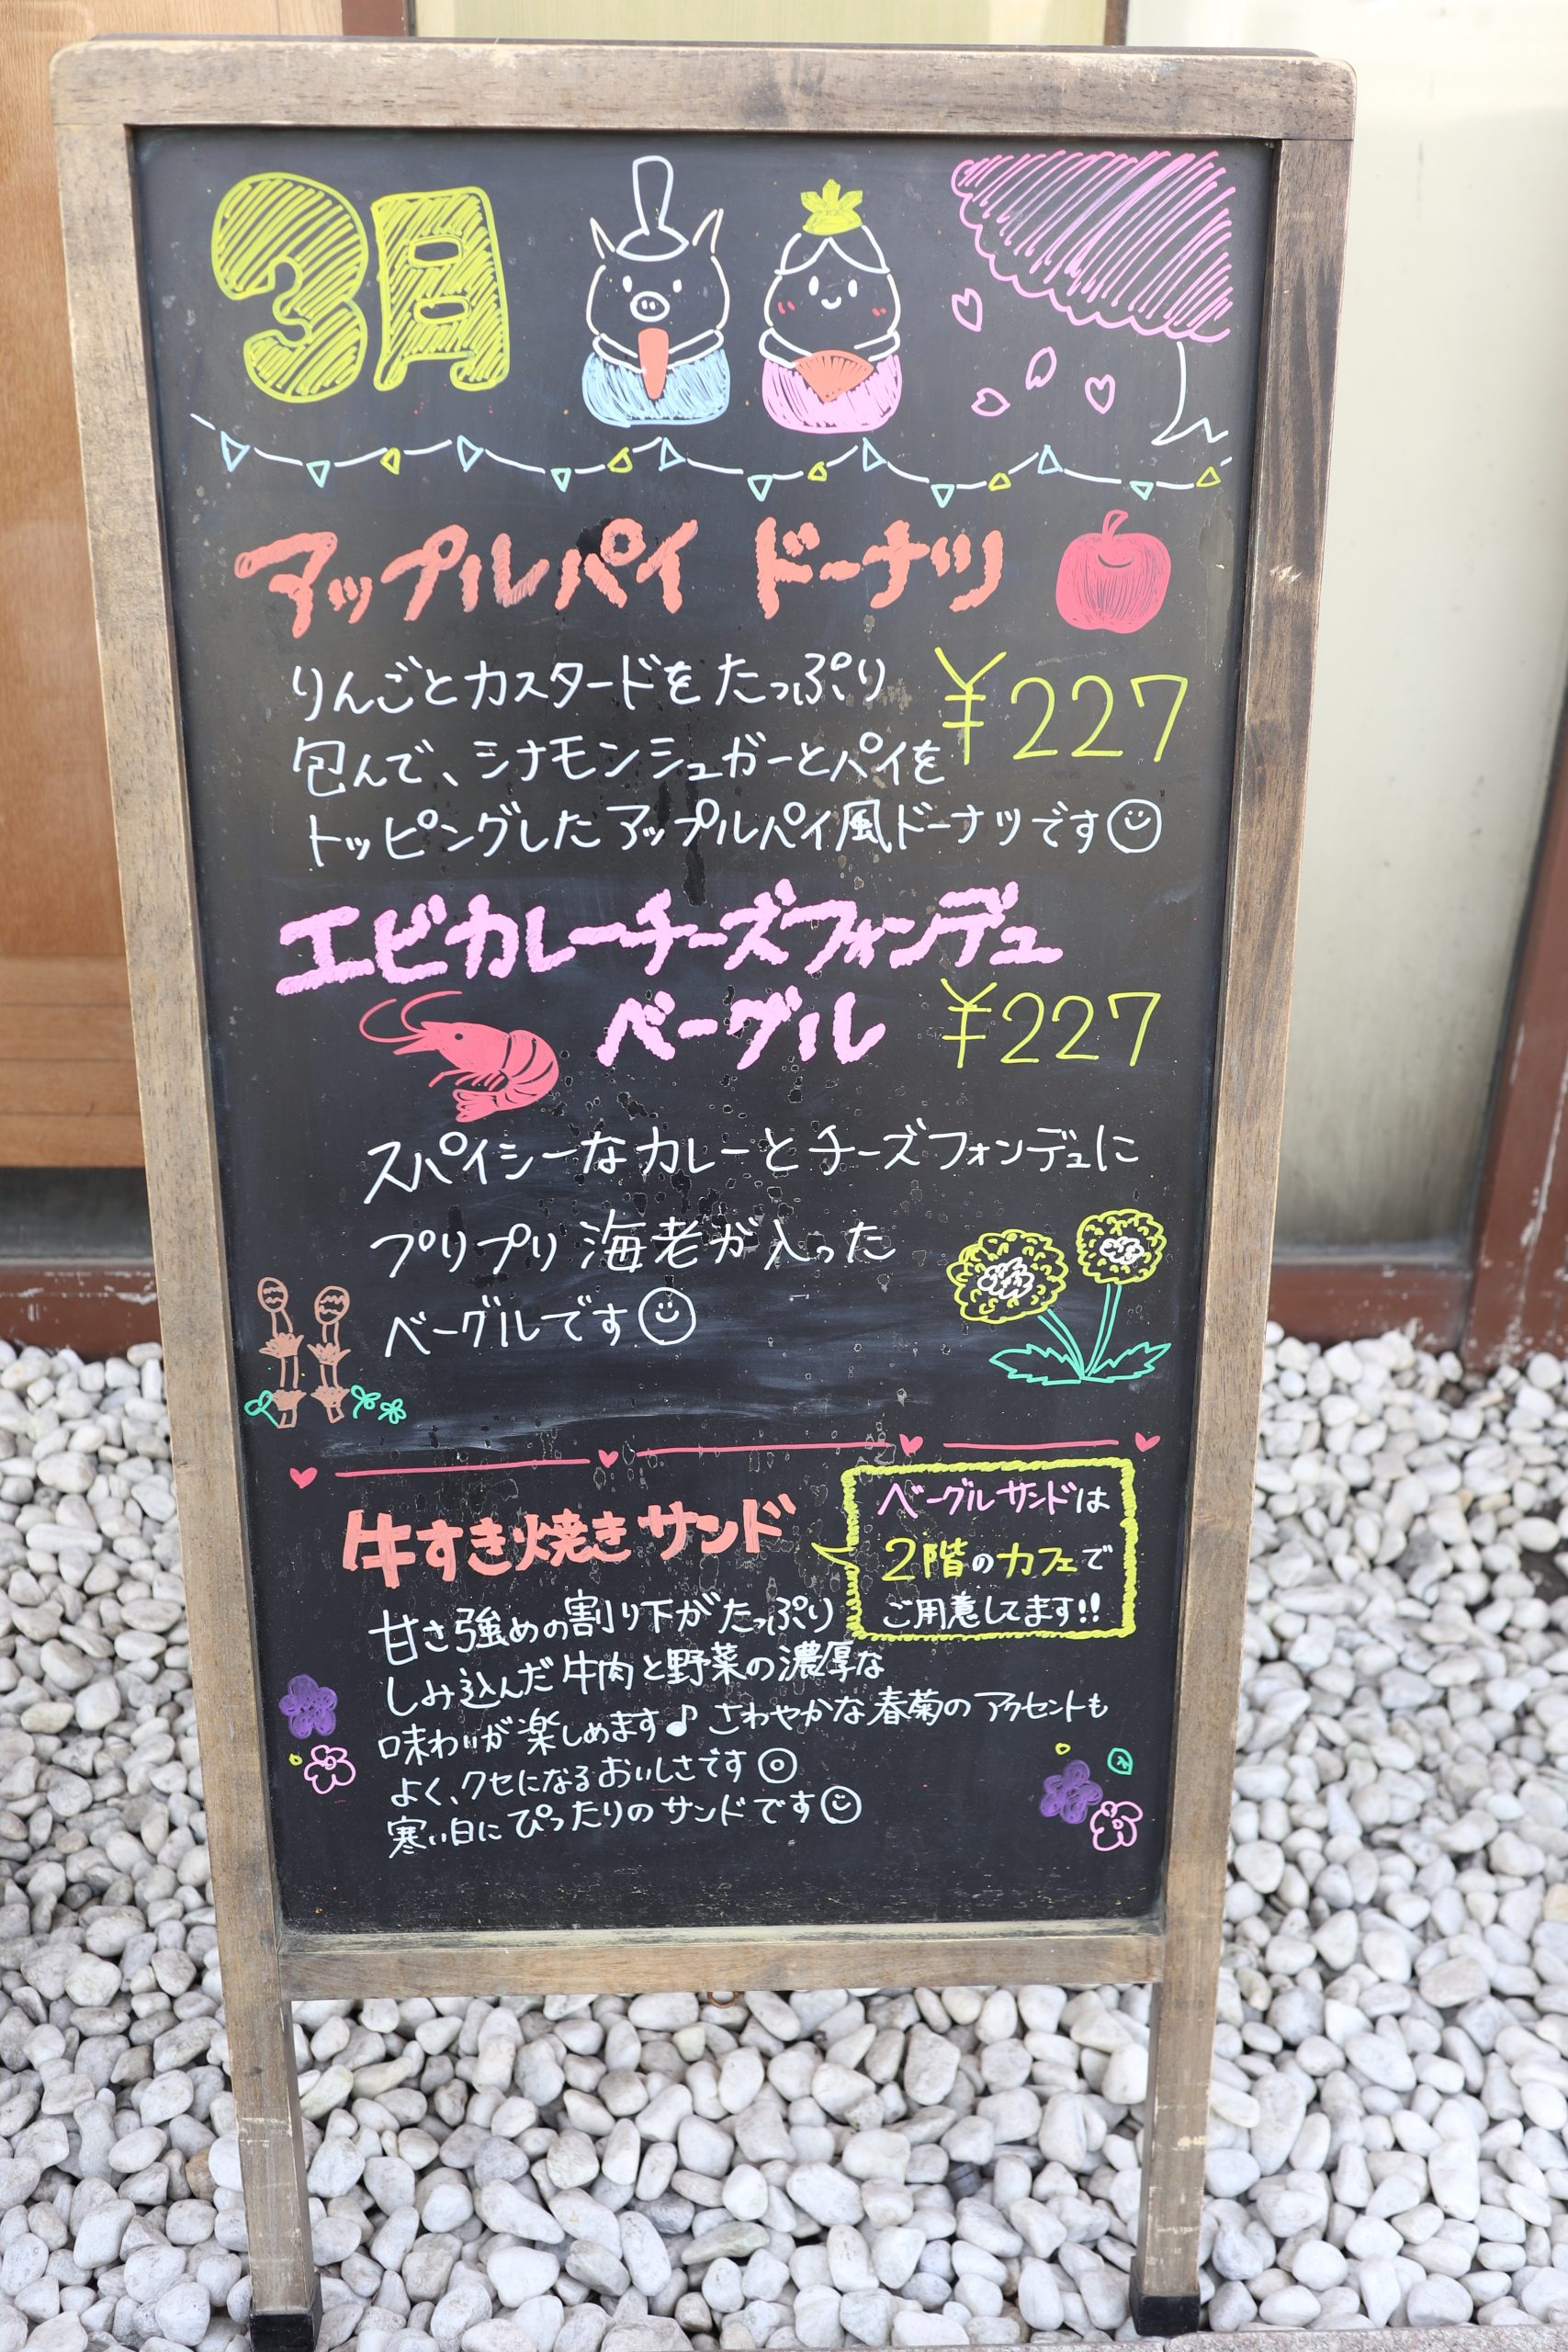 3月
アップルパイ ドーナツ
りんごとカスタードをたっぷり
¥227
包んで、シナモンシュガーとパイを
トッピングしたアップルパイ風ドーナツです
エビカレーチーズフォンデュ
ベーグル ¥227
スパイシーなカレーとチーズフォンデュに
プリプリ海老が入った
ベーグルです
牛すき焼きサンド
ベーグルサンドは
2階のカフェで
ご用意してます!!
甘さ強めの割り下がたっぷり
しみ込んだ牛肉と野菜の濃厚な
味わいが楽しめます♪ さわやかな春菊のアクセントも
よく、クセになるおいしさです◎
寒い日にぴったりのサンドです